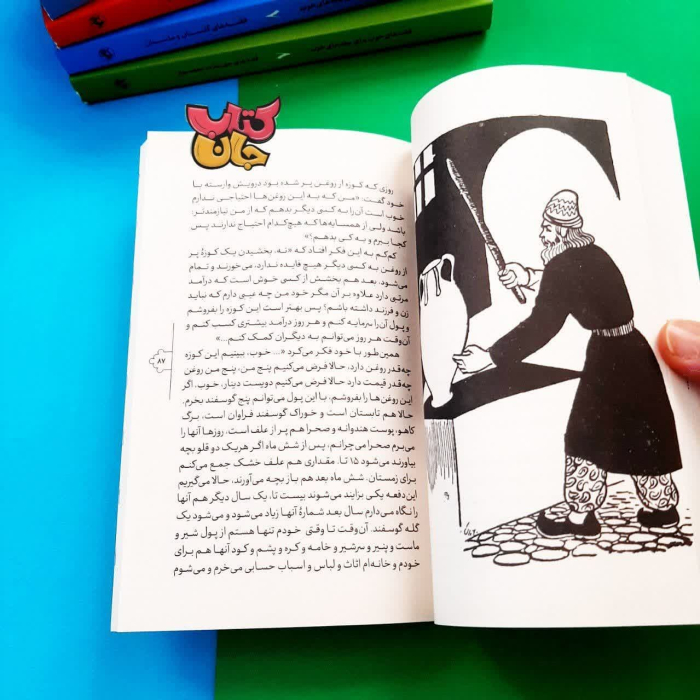 کتاب
جان
روزی که کوزه از روغن پر شده بود درویش وارسته با
خود گفت: «من که به این روغن‌ها احتیاجی ندارم
خوب است آن‌را به کسی دیگر بدهم که از من نیازمندتر
باشد ولی از همسایه‌ها که هیچ‌کدام احتیاج ندارند پس
کجا ببرم و به کی بدهم؟»
کم‌کم به این فکر افتاد که «نه، بخشیدن یک کوزهٔ پر
از روغن به کسی دیگر هیچ فایده ندارد، می‌خورند و تمام
می‌شود، بعد هم بخشش از کسی خوش است که درآمد
مرتبی دارد علاوه بر آن مگر خود من چه عیبی دارم که نباید
زن و فرزند داشته باشم؟ پس بهتر است این کوزه را بفروشم
و پول آن‌را سرمایه کنم و هر روز درآمد بیشتری کسب کنم و
آن‌وقت هر روز می‌توانم به دیگران کمک کنم...»
همین‌طور با خود فکر می‌کرد «... خوب، ببینیم این کوزه
چه‌قدر روغن دارد، حالا فرض می‌کنیم پنج من، پنج من روغن
چه‌قدر قیمت دارد حالا فرض می‌کنیم دویست دینار، خوب، اگر
این روغن‌ها را بفروشم، با این پول می‌توانم پنج گوسفند بخرم.
حالا هم تابستان است و خوراک گوسفند فراوان است، برگ
کاهو، پوست هندوانه و صحرا هم پر از علف است، روزها آنها را
می‌برم صحرا می‌چرانم، پس از شش ماه اگر هریک دو قلو بچه
بیاورند می‌شود ۱۵ تا. مقداری هم علف خشک جمع می‌کنم
برای زمستان. شش ماه بعد هم باز بچه می‌آورند، حالا می‌گیریم
این دفعه یکی بزایند می‌شوند بیست تا، یک سال دیگر هم آنها
را نگاه می‌دارم سال بعد شمارهٔ آنها زیاد می‌شود و می‌شود یک
گله گوسفند. آن‌وقت تا وقتی خودم تنها هستم از پول شیر و
ماست و پنیر و سرشیر و خامه و کره و پشم و کود آنها هم برای
خودم و خانه‌ام اثاث و لباس و اسباب حسابی می‌خرم و می‌شوم
۸۷